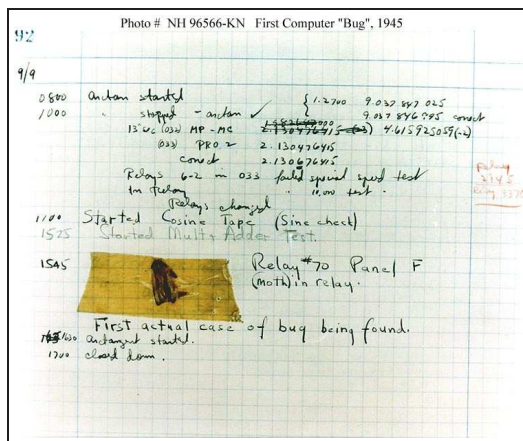 Photo # NH 96566-KN First Computer "Bug", 1945
92
9/9
0800 Antan started
1000 " stopped - antan ✓ { 1.2700 9.037 847 025
9.037 846 995 correct
13"uc (032) MP - MC 2.130476415 4.615925059(-2)
(033) PRO 2 2.130476415
correct 2.130676415
Relays 6-2 in 033 failed special speed test
In Relay " 10,000 test .
Relays changed
Relay
2145
Relay 3370
1100 Started Cosine Tape (Sine check)
1525 Started Mult+Adder Test.
1545 Relay #70 Panel F
(Moth) in relay.
First actual case of bug being found.
1630 antangent started.
1700 closed down.